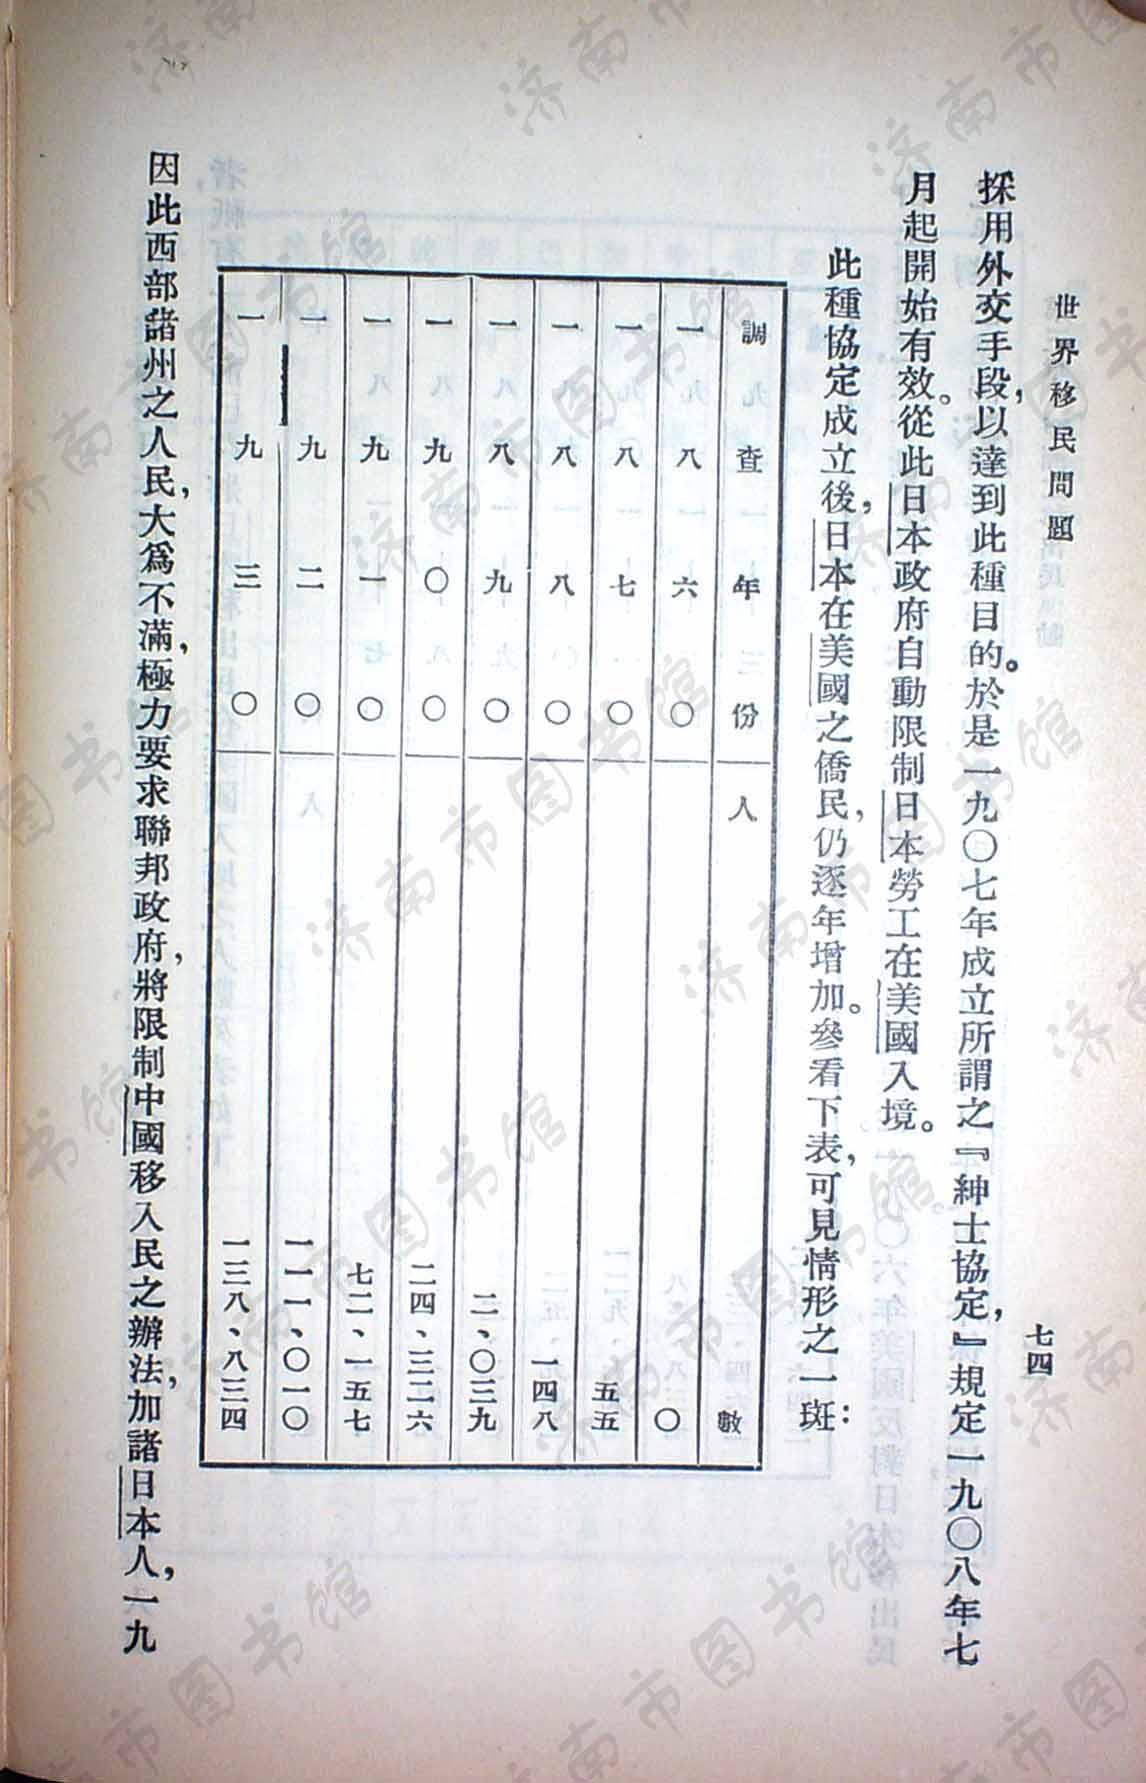 世界移民問題
七四
採用外交手段，以達到此種目的。於是一九〇七年成立所謂之『紳士協定，』規定一九〇八年七
月起開始有效。從此日本政府自動限制日本勞工在美國入境。
此種協定成立後，日本在美國之僑民，仍逐年增加。參看下表，可見情形之一斑：
調查年份 人數
一八六〇 〇
一八七〇 五五
一八八〇 一四八
一八九〇 二、〇三九
一九〇〇 二四、三二六
一九一〇 七二、一五七
一九二〇 一一一、〇一〇
一九三〇 一三八、八三四
因此西部諸州之人民，大爲不滿，極力要求聯邦政府，將限制中國移入民之辦法，加諸日本人，一九
济南市图书馆